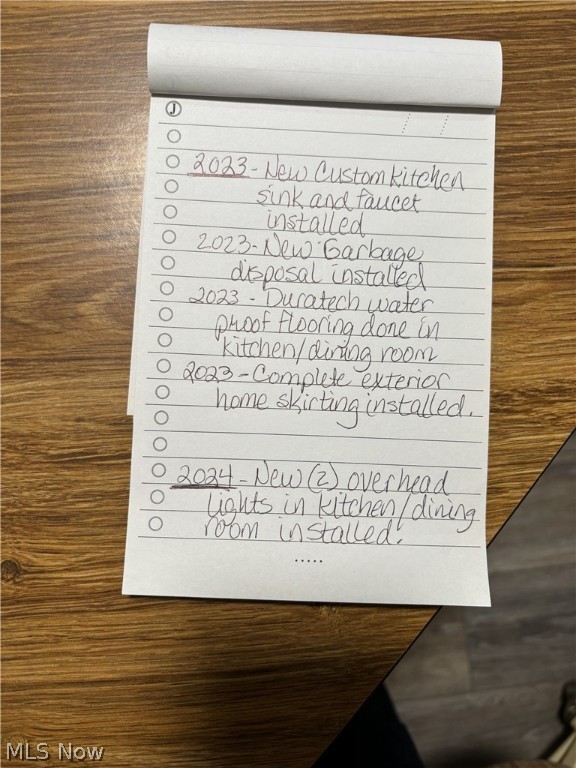 J
2023 - New Custom kitchen
sink and faucet
installed
2023 - New Garbage
disposal installed
2023 - Duratech water
proof flooring done in
kitchen/dining room
2023 - Complete exterior
home skirting installed.
2024 - New (2) overhead
lights in kitchen/dining
room installed.
MLS Now